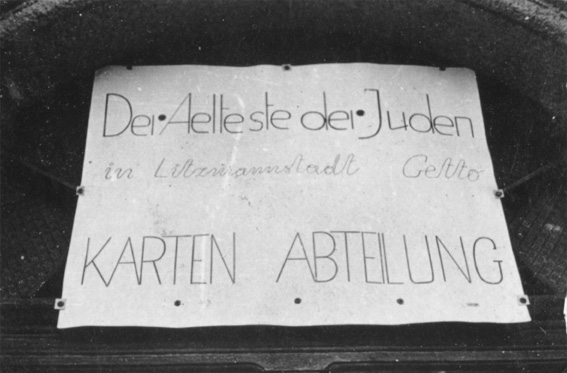 Der Aelteste der Juden
in Litzmannstadt Getto
KARTEN ABTEILUNG